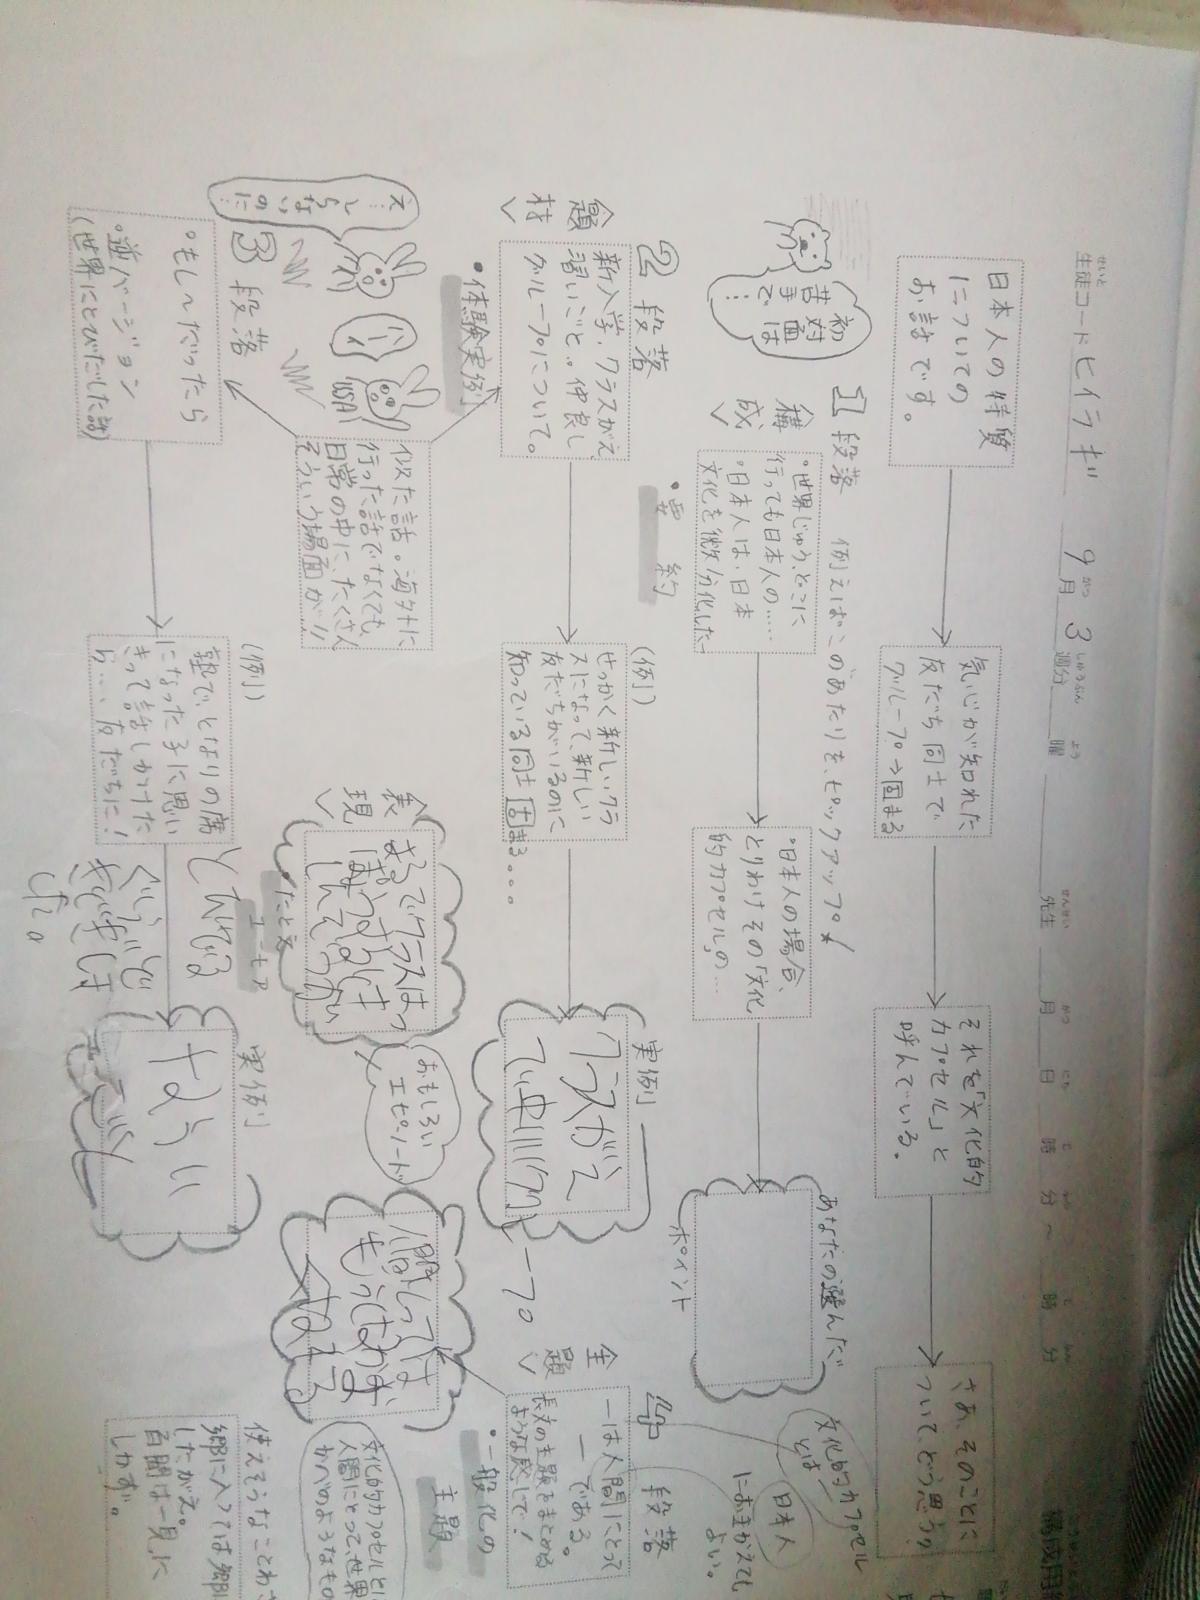 生徒コード ヒイラギ 9月 3週分 曜 先生 月 日 時 分 ~ 時 分
せいと がつ しゅうぶん よう せんせい がつ にち じ ふん じ ふん
日本人の特質
についての
お話です。
気心が知れた
友だち同士で
グループ→固まる
それを「文化的
カプセル」と
呼んでいる。
さあ、そのことに
ついてどう思う?
1段落 例えばこのあたりを、ピックアップ★
初対面は
苦手で…
構成
・世界じゅう、どこに
行っても日本人の……
・日本人は、日本
文化を微分化した
・日本人の場合、
とりわけその「文化
的カプセル」の…
あなたの選んだ
ポイント
・要約
文化的カプセル
とは
日本人
におきかえても
よい。
2段落
題材
新入学、クラスがえ、
習いごと。仲良し
グループについて。
・体験実例
(例)
せっかく新しいクラ
スになって、新しい
友だちがいるのに
知っている同士固まる...
実例
クラスがえ
4段落
全題
―は人間にとって
―である。
長文の主題をまとめる
ような感じで!
・一般化の
主題
文化的カプセルとは
人間にとって、世界
かべのようなもの
似た話。海外に
行った話でなくても、
日常の中に、たくさん
そういう場面が!!
え…
しらないのに
ハーイ
USA
表現
まるでクラスはっ
・たとえ
おもしろい
エピソード
3段落
・もし~だったら
・逆バージョン
(世界にとびだした話)
(例)
塾で、となりの席
になった子に思い
きって話しかけた
ら…、友だちに!
実例
ならい
使えそうなことわざ
郷に入っては郷に
したがえ。
百聞は一見に
しかず。